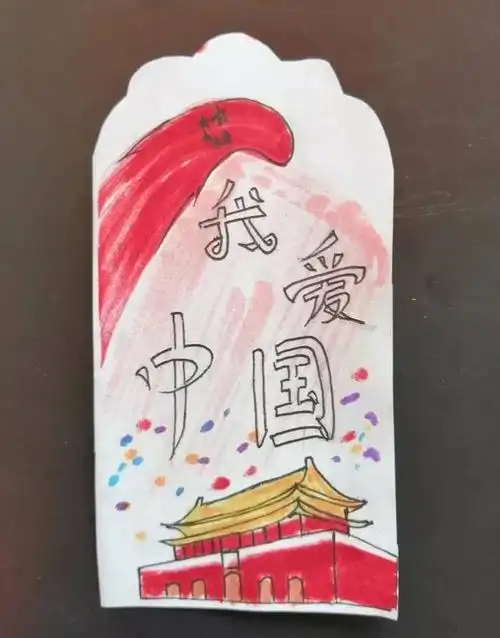 我
爱
中国